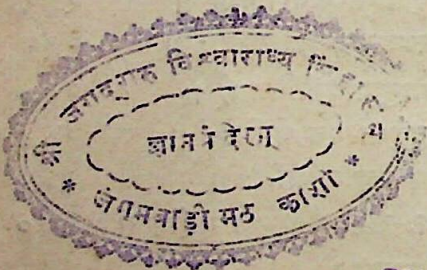 श्री जगद्गुरु विश्वाराध्य
ज्ञानमंदिर
* जंगमवाड़ी मठ काशी *